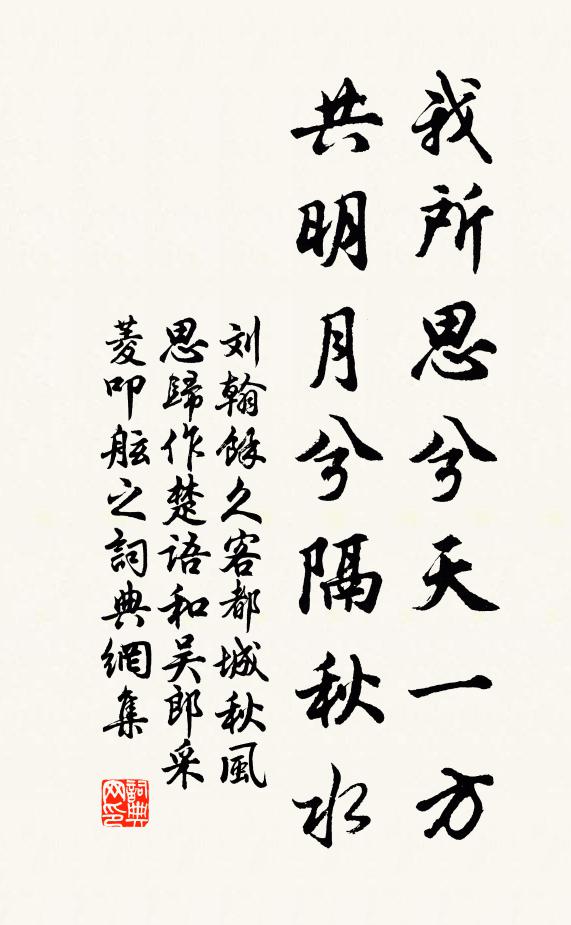 我所思兮天一方
共明月兮隔秋水
刘翰餘久客都城秋風
思歸作楚語和吴郎采
菱叩舷之詞典網集
詞典
网印